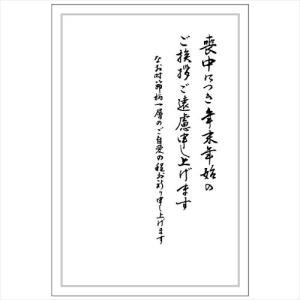 喪中につき年末年始の
ご挨拶ご遠慮申し上げます
なお時節柄一層のご自愛の程お祈り申し上げます